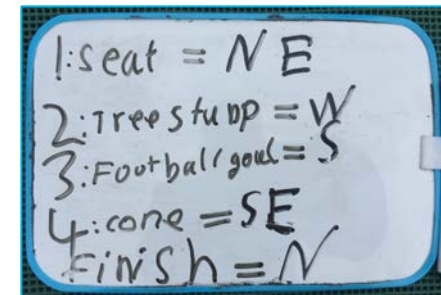 1:seat = NE
2:Tree stupp = W
3:Football goal = S
4:cone = SE
Finish = N